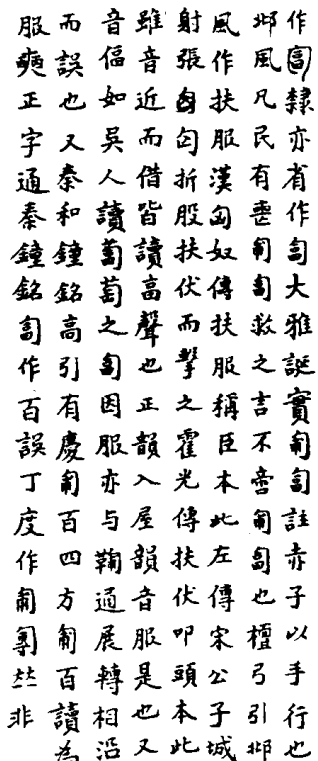 作㔨隸亦省作匐大雅誕實匍匐註赤子以手行也
邶風凡民有喪匍匐救之言不啻匍匐也檀弓引邶
風作扶服漢匈奴傳扶服稱臣本此左傳宋公子城
射張匄匄折股扶伏而擊之霍光傳扶伏叩頭本此
雖音近而借皆讀高聲也正韻入屋韻音服是也又
音偪如吳人讀蔔萄之匐因服亦与鞠通展轉相沿
而誤也又秦和鐘銘高引有慶匍百四方匍百讀為
服奭正字通秦鐘銘匐作百誤丁度作匍𠣾𠀤非